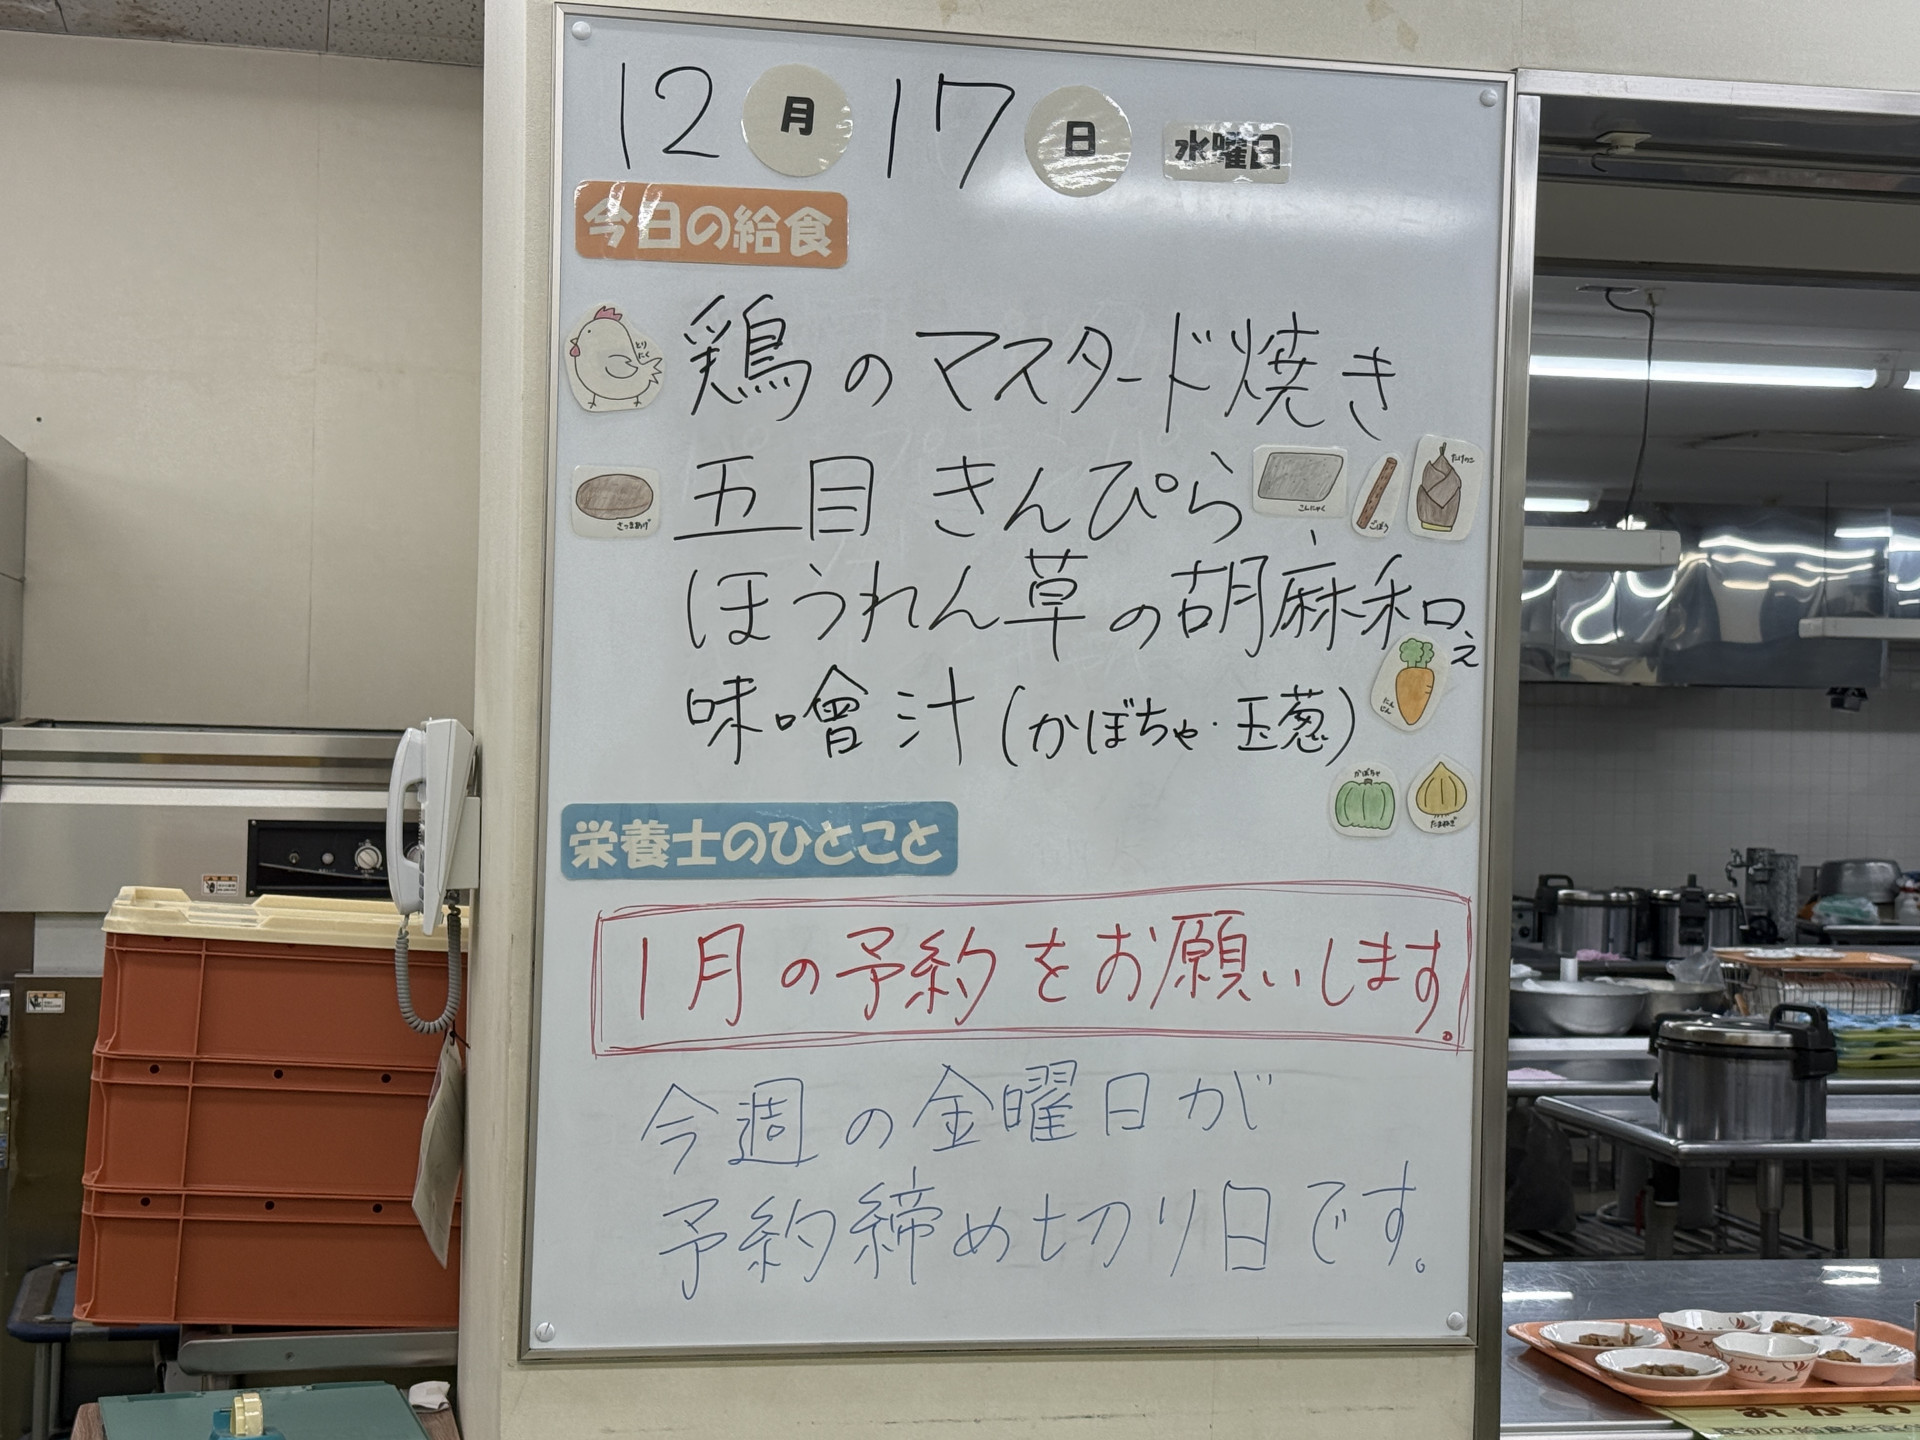 12月17日 水曜日
今日の給食
とりにく
鶏のマスタード焼き
さつまあげ
五目きんぴら
こんにゃく
ごぼう
たけのこ
ほうれん草の胡麻和え
にんじん
味噌汁(かぼちゃ・玉葱)
かぼちゃ
たまねぎ
栄養士のひとこと
1月の予約をお願いします。
今週の金曜日が
予約締め切り日です。
おかわ